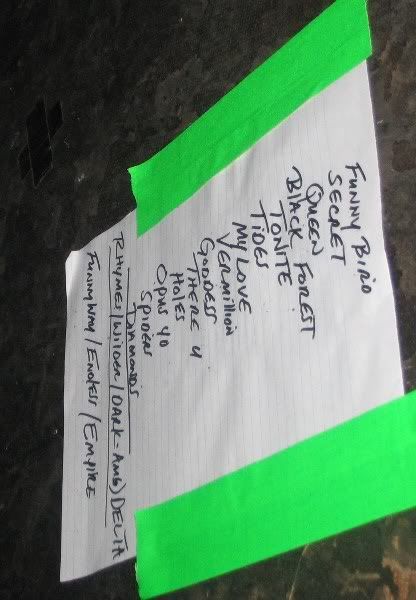 FUNNY BIRD
SECRET
QUEEN
BLACK FOREST
TONITE
TIDES
MY LOVE
VERMILLION
GODDESS
THERE U
HOLES
OPUS 40
SPIDERS
DIAMONDS
RHYMES/WILDER/DARK-AMG)DELTA
FUNNYWAY/ENDLESS/EMPIRE